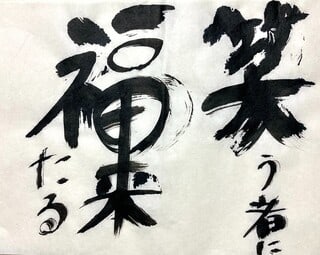 笑う者に
福来たる